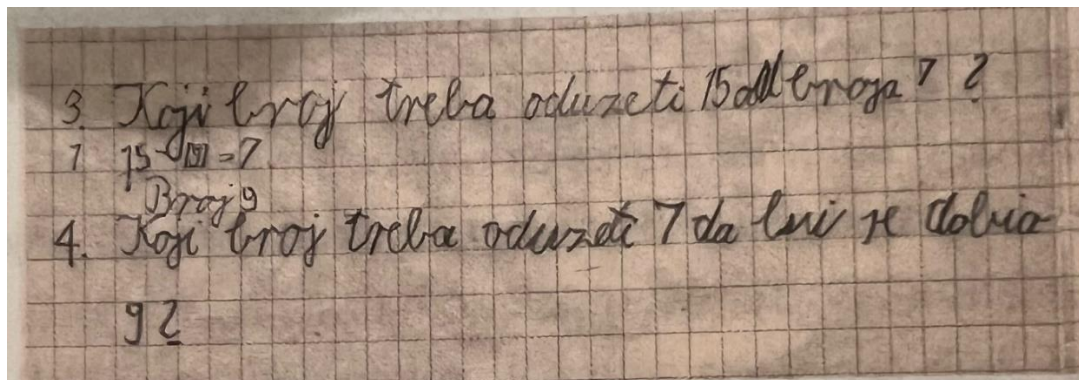 3. Koji broj treba oduzeti 15 od broja 7 ?
7 15 - 9 = 7
Broj 9
4. Koji broj treba oduzeti 7 da bui se dobio
9 ?